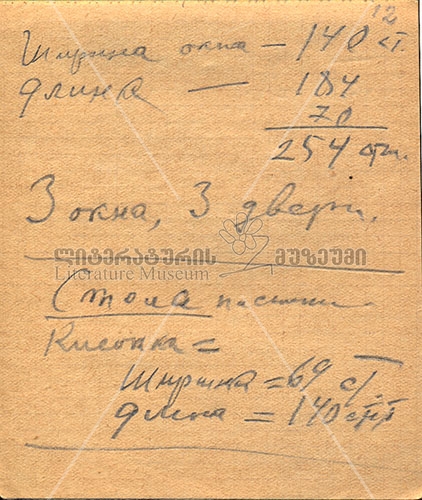 12
Ширина окна – 140 ст.
Длина — 184
70
254 ст.
3 окна, 3 двери.
ლიტერატურის მუზეუმი
Literature Museum
Стола
Ширина = 69 ст.
Длина = 140 стт